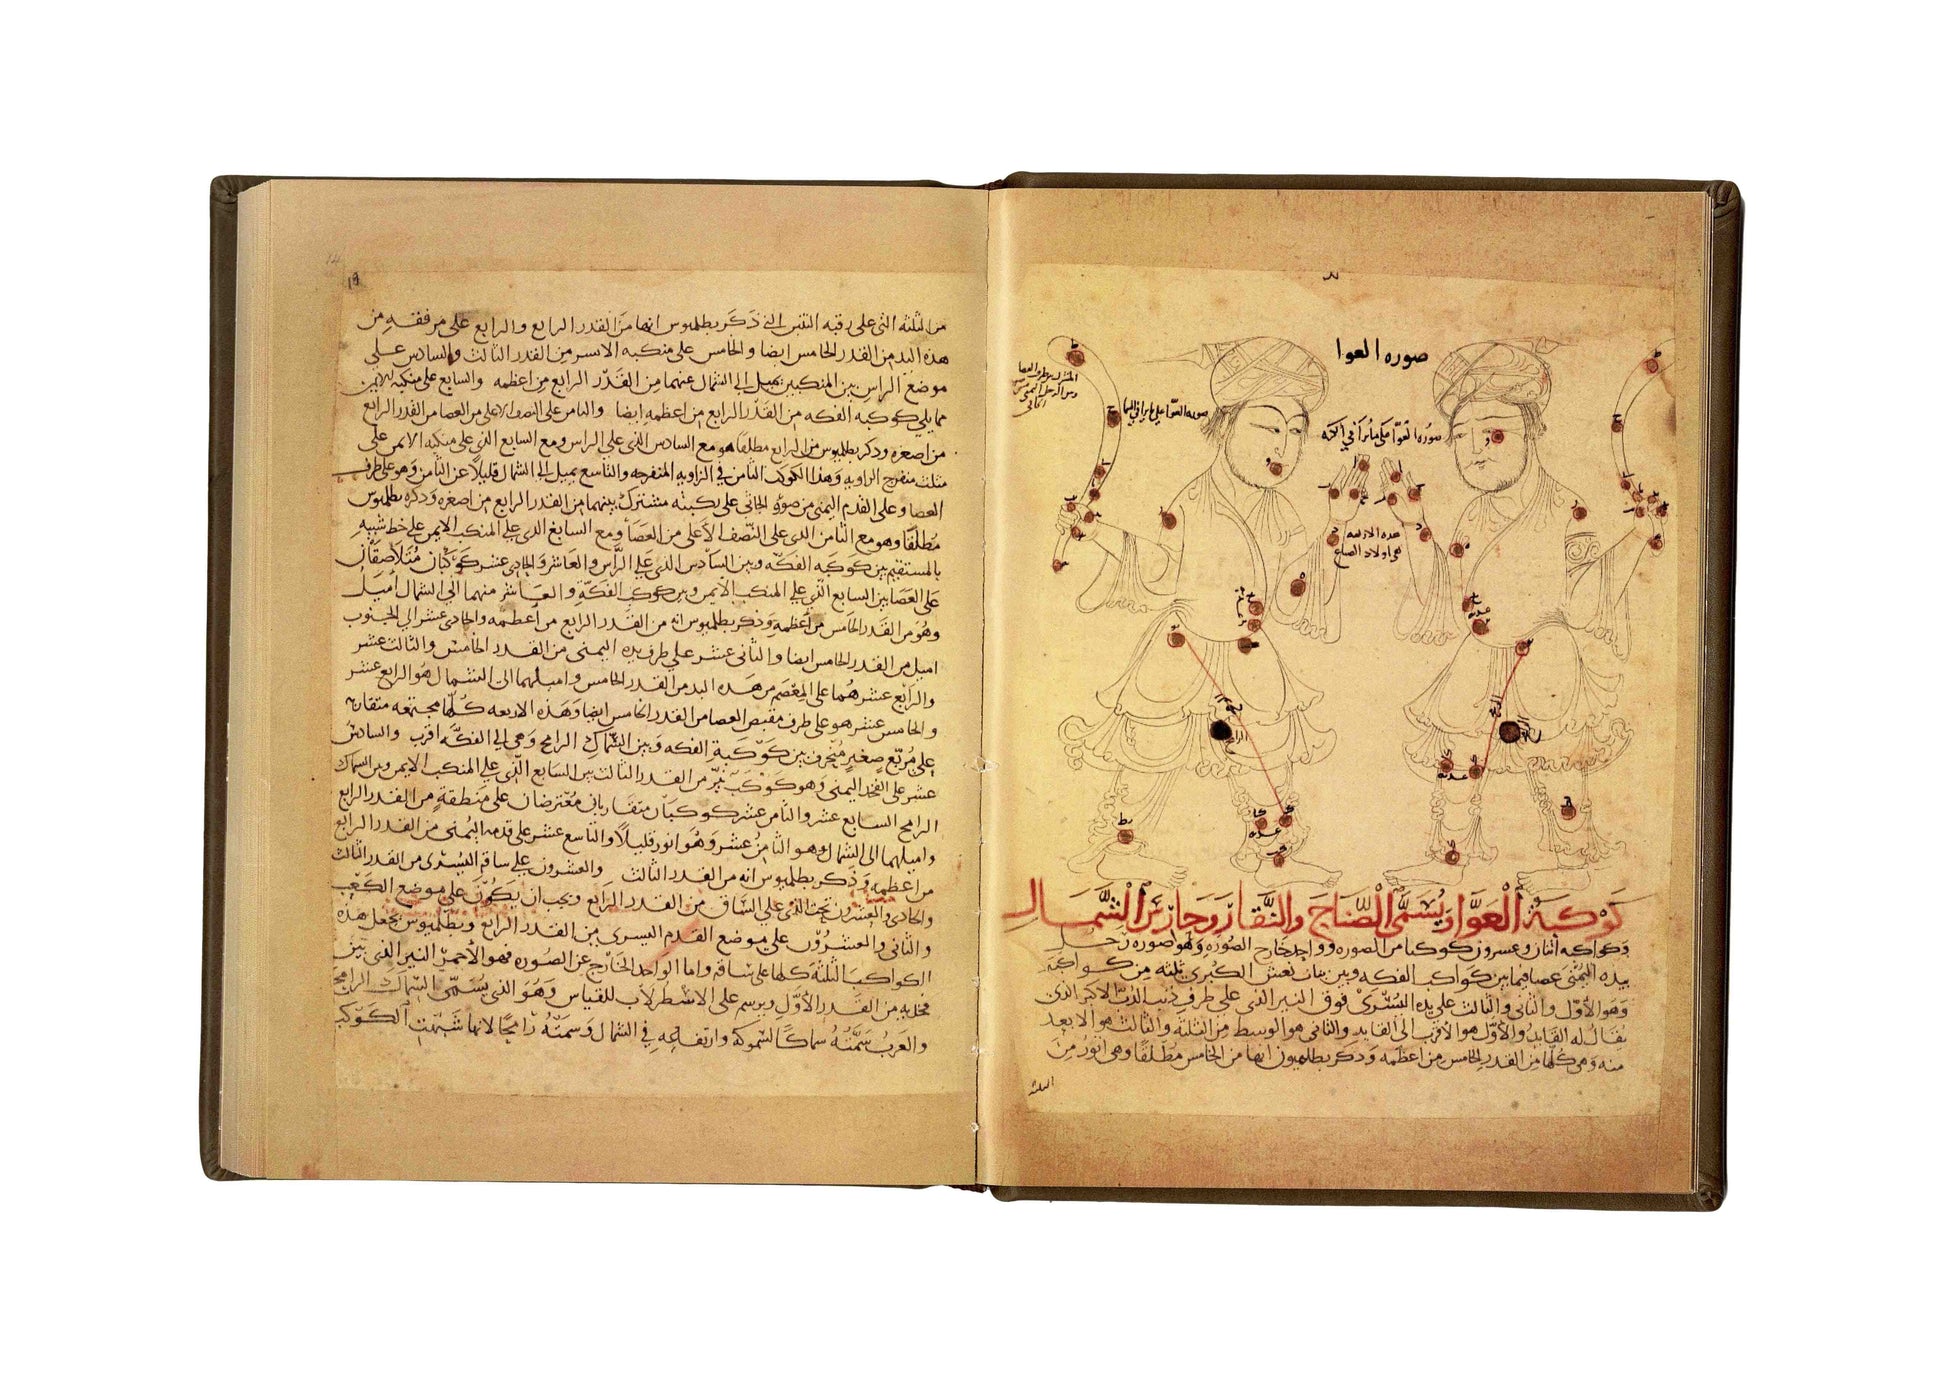 صوره العوا
صوره العوا على ما يرا في السما
صوره العوا على ما يرا في الكره
هذه الاربعه
هي اولاد الضباع
الرامح
كوكبة العَوَّا ويُسَمَّى الصَّنَّاجَ والنَّقَّارَ وحَارِسَ الشَّمَال
وكواكبه اثنان وعشرون كوكبا من الصوره وواحد خارج الصوره وهو صوره رجل
بيده اليمنى عصا فيما بين كواكب الفكه وبين بنات نعش الكبرى ثلثه من كواكبه
وهو الاول والثاني والثالث على يده اليسرى فوق النير الذي على طرف ذنب الدب الاكبر الذي
يقال له القايد والاول هو الاقرب الى القايد والثاني هو الوسط من الثلثة والثالث هو الابعد
منه وهي كلها من القدر الخامس من اعظمه وذكر بطلميوس انها من الخامس مطلقا وهي انور من
الثلثه
١٩
من الثلثه التي على رقبه التنين التي ذكر بطلميوس انها من القدر الرابع والرابع على مرفقه من
هذه اليد من القدر الخامس ايضا والخامس على منكبه الايسر من القدر الثالث والسادس على
موضع الراس بين المنكبين يميل الى الشمال عنهما من القدر الرابع من اعظمه والسابع على منكبه الايمن
مما يلي كوكبه الفكه من القدر الرابع من اعظمه ايضا والثامن على النصف الاعلى من العصا من القدر الرابع
من اصغره وذكر بطلميوس من الرابع مطلقا هو مع السادس الذي على الراس ومع السابع الذي على منكبه الايمن على
مثلث منفرج الزاويه وهذا الكوكب الثامن في الزاويه المنفرجه والتاسع يميل الى الشمال قليلا عن الثامن وهو على طرف
العصا وعلى القدم اليمنى من صوره الجاثي على ركبتيه مشترك بينهما من القدر الرابع من اصغره وذكره بطلميوس
مطلقا وهو مع الثامن الذي على النصف الاعلى من العصا ومع السابع الذي على المنكب الايمن على خط شبيه
بالمستقيم بين كوكبه الفكه وبين السادس الذي على الراس والعاشر والحادي عشر كوكبان متلاصقان
على العصا بين السابع الذي على المنكب الايمن وبين كوكب الفكة والعاشر منهما الى الشمال اميل
وهو من القدر الخامس من اعظمه وذكر بطلميوس انه من القدر الرابع من اعظمه والحادي عشر الى الجنوب
اميل من القدر الخامس ايضا والثاني عشر على طرف يده اليمنى من القدر الخامس والثالث عشر
والرابع عشر هما على المعصم من هذه اليد من القدر الخامس واميلهما الى الشمال هو الرابع عشر
والخامس عشر هو على طرف مقبض العصا من القدر الخامس ايضا وهذه الاربعه كلها مجتمعه متقاربه
على مربع صغير منحرف بين كوكبة الفكه وبين السماك الرامح وهي الى الفكه اقرب والسادس
عشر على الفخذ اليمنى وهو كوكب نير من القدر الثالث بين السابع الذي على المنكب الايمن وبين السماك
الرامح السابع عشر والثامن عشر كوكبان متقاربان معترضان على منطقة من القدر الرابع
واميلهما الى الشمال وهو الثامن عشر وهو انور قليلا والتاسع عشر على قدمه اليمنى من القدر الرابع
من اعظمه وذكر بطلميوس انه من القدر الثالث والعشرون على ساقه اليسرى من القدر الثالث
والحادي والعشرون تحت الذي على الساق من القدر الرابع ويجب ان يكون على موضع الكعب
والثاني والعشرون على موضع القدم اليسرى من القدر الرابع وبطلميوس يجعل هذه
الكواكب الثلثة كلها على ساقه واما الواحد الخارج عن الصوره فهو الاحمر النير الذي بين
فخذيه من القدر الاول ويرسم على الاسطرلاب للقياس وهو الذي يسمى السماك الرامح
والعرب سمته سماكا لسموكه وارتفاعه في الشمال وسمته رامحا لانها شبهت الكوكب